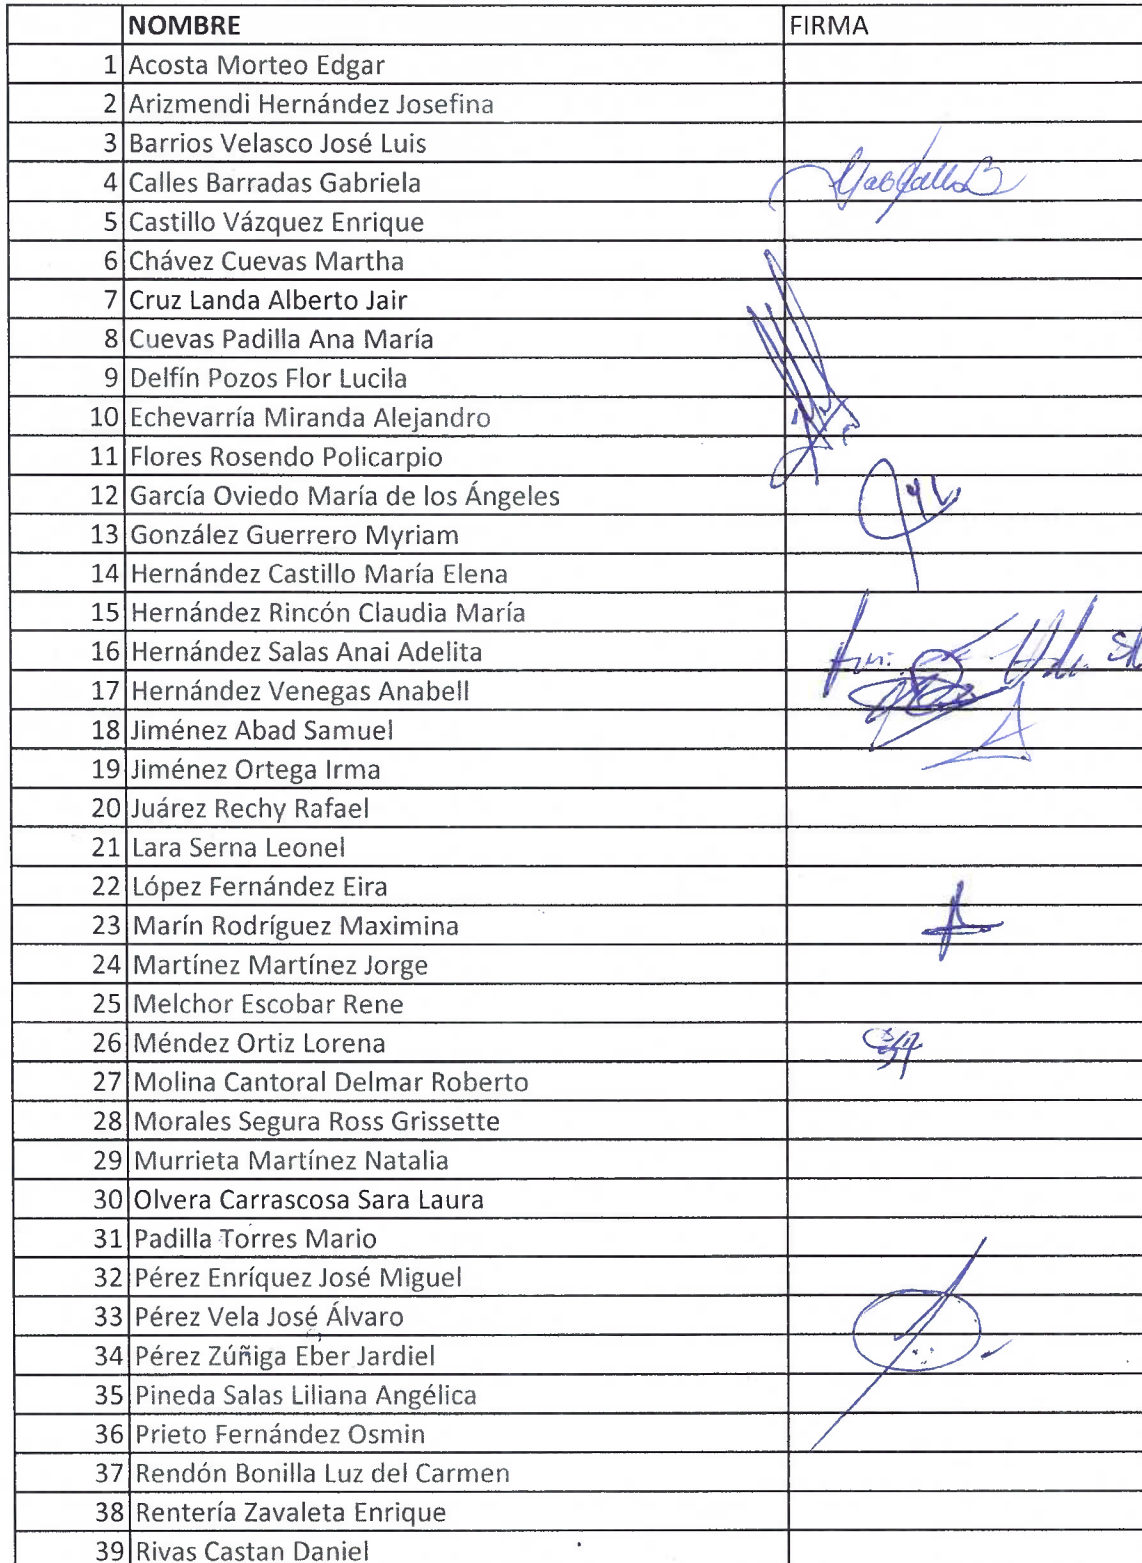 NOMBRE FIRMA
1 Acosta Morteo Edgar
2 Arizmendi Hernández Josefina
3 Barrios Velasco José Luis
4 Calles Barradas Gabriela
5 Castillo Vázquez Enrique
6 Chávez Cuevas Martha
7 Cruz Landa Alberto Jair
8 Cuevas Padilla Ana María
9 Delfín Pozos Flor Lucila
10 Echevarría Miranda Alejandro
11 Flores Rosendo Policarpio
12 García Oviedo María de los Ángeles
13 González Guerrero Myriam
14 Hernández Castillo María Elena
15 Hernández Rincón Claudia María
16 Hernández Salas Anai Adelita
17 Hernández Venegas Anabell
18 Jiménez Abad Samuel
19 Jiménez Ortega Irma
20 Juárez Rechy Rafael
21 Lara Serna Leonel
22 López Fernández Eira
23 Marín Rodríguez Maximina
24 Martínez Martínez Jorge
25 Melchor Escobar Rene
26 Méndez Ortiz Lorena
27 Molina Cantoral Delmar Roberto
28 Morales Segura Ross Grissette
29 Murrieta Martínez Natalia
30 Olvera Carrascosa Sara Laura
31 Padilla Torres Mario
32 Pérez Enríquez José Miguel
33 Pérez Vela José Álvaro
34 Pérez Zúñiga Eber Jardiel
35 Pineda Salas Liliana Angélica
36 Prieto Fernández Osmin
37 Rendón Bonilla Luz del Carmen
38 Rentería Zavaleta Enrique
39 Rivas Castan Daniel